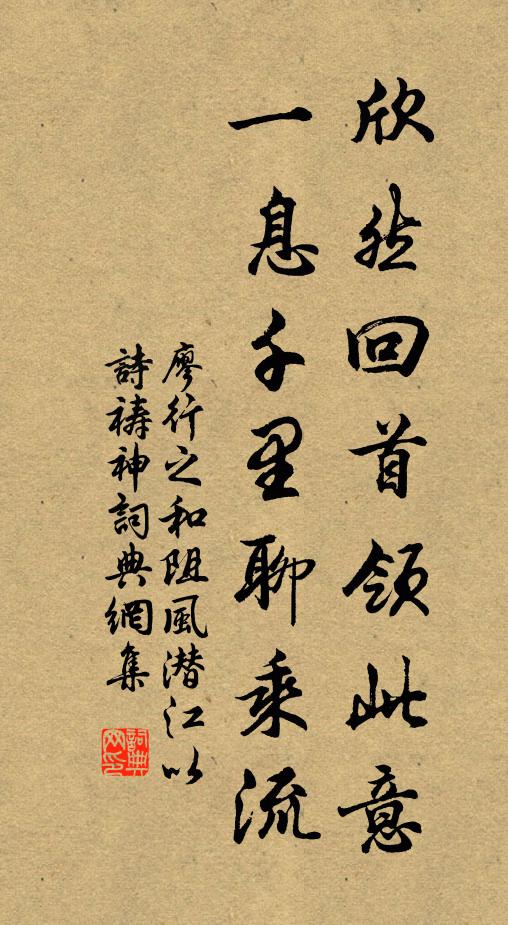 欣然回首領此意
一息千里聊乘流
廖行之和阻風潜江以
詩禱神詞典網集
詞典
网印